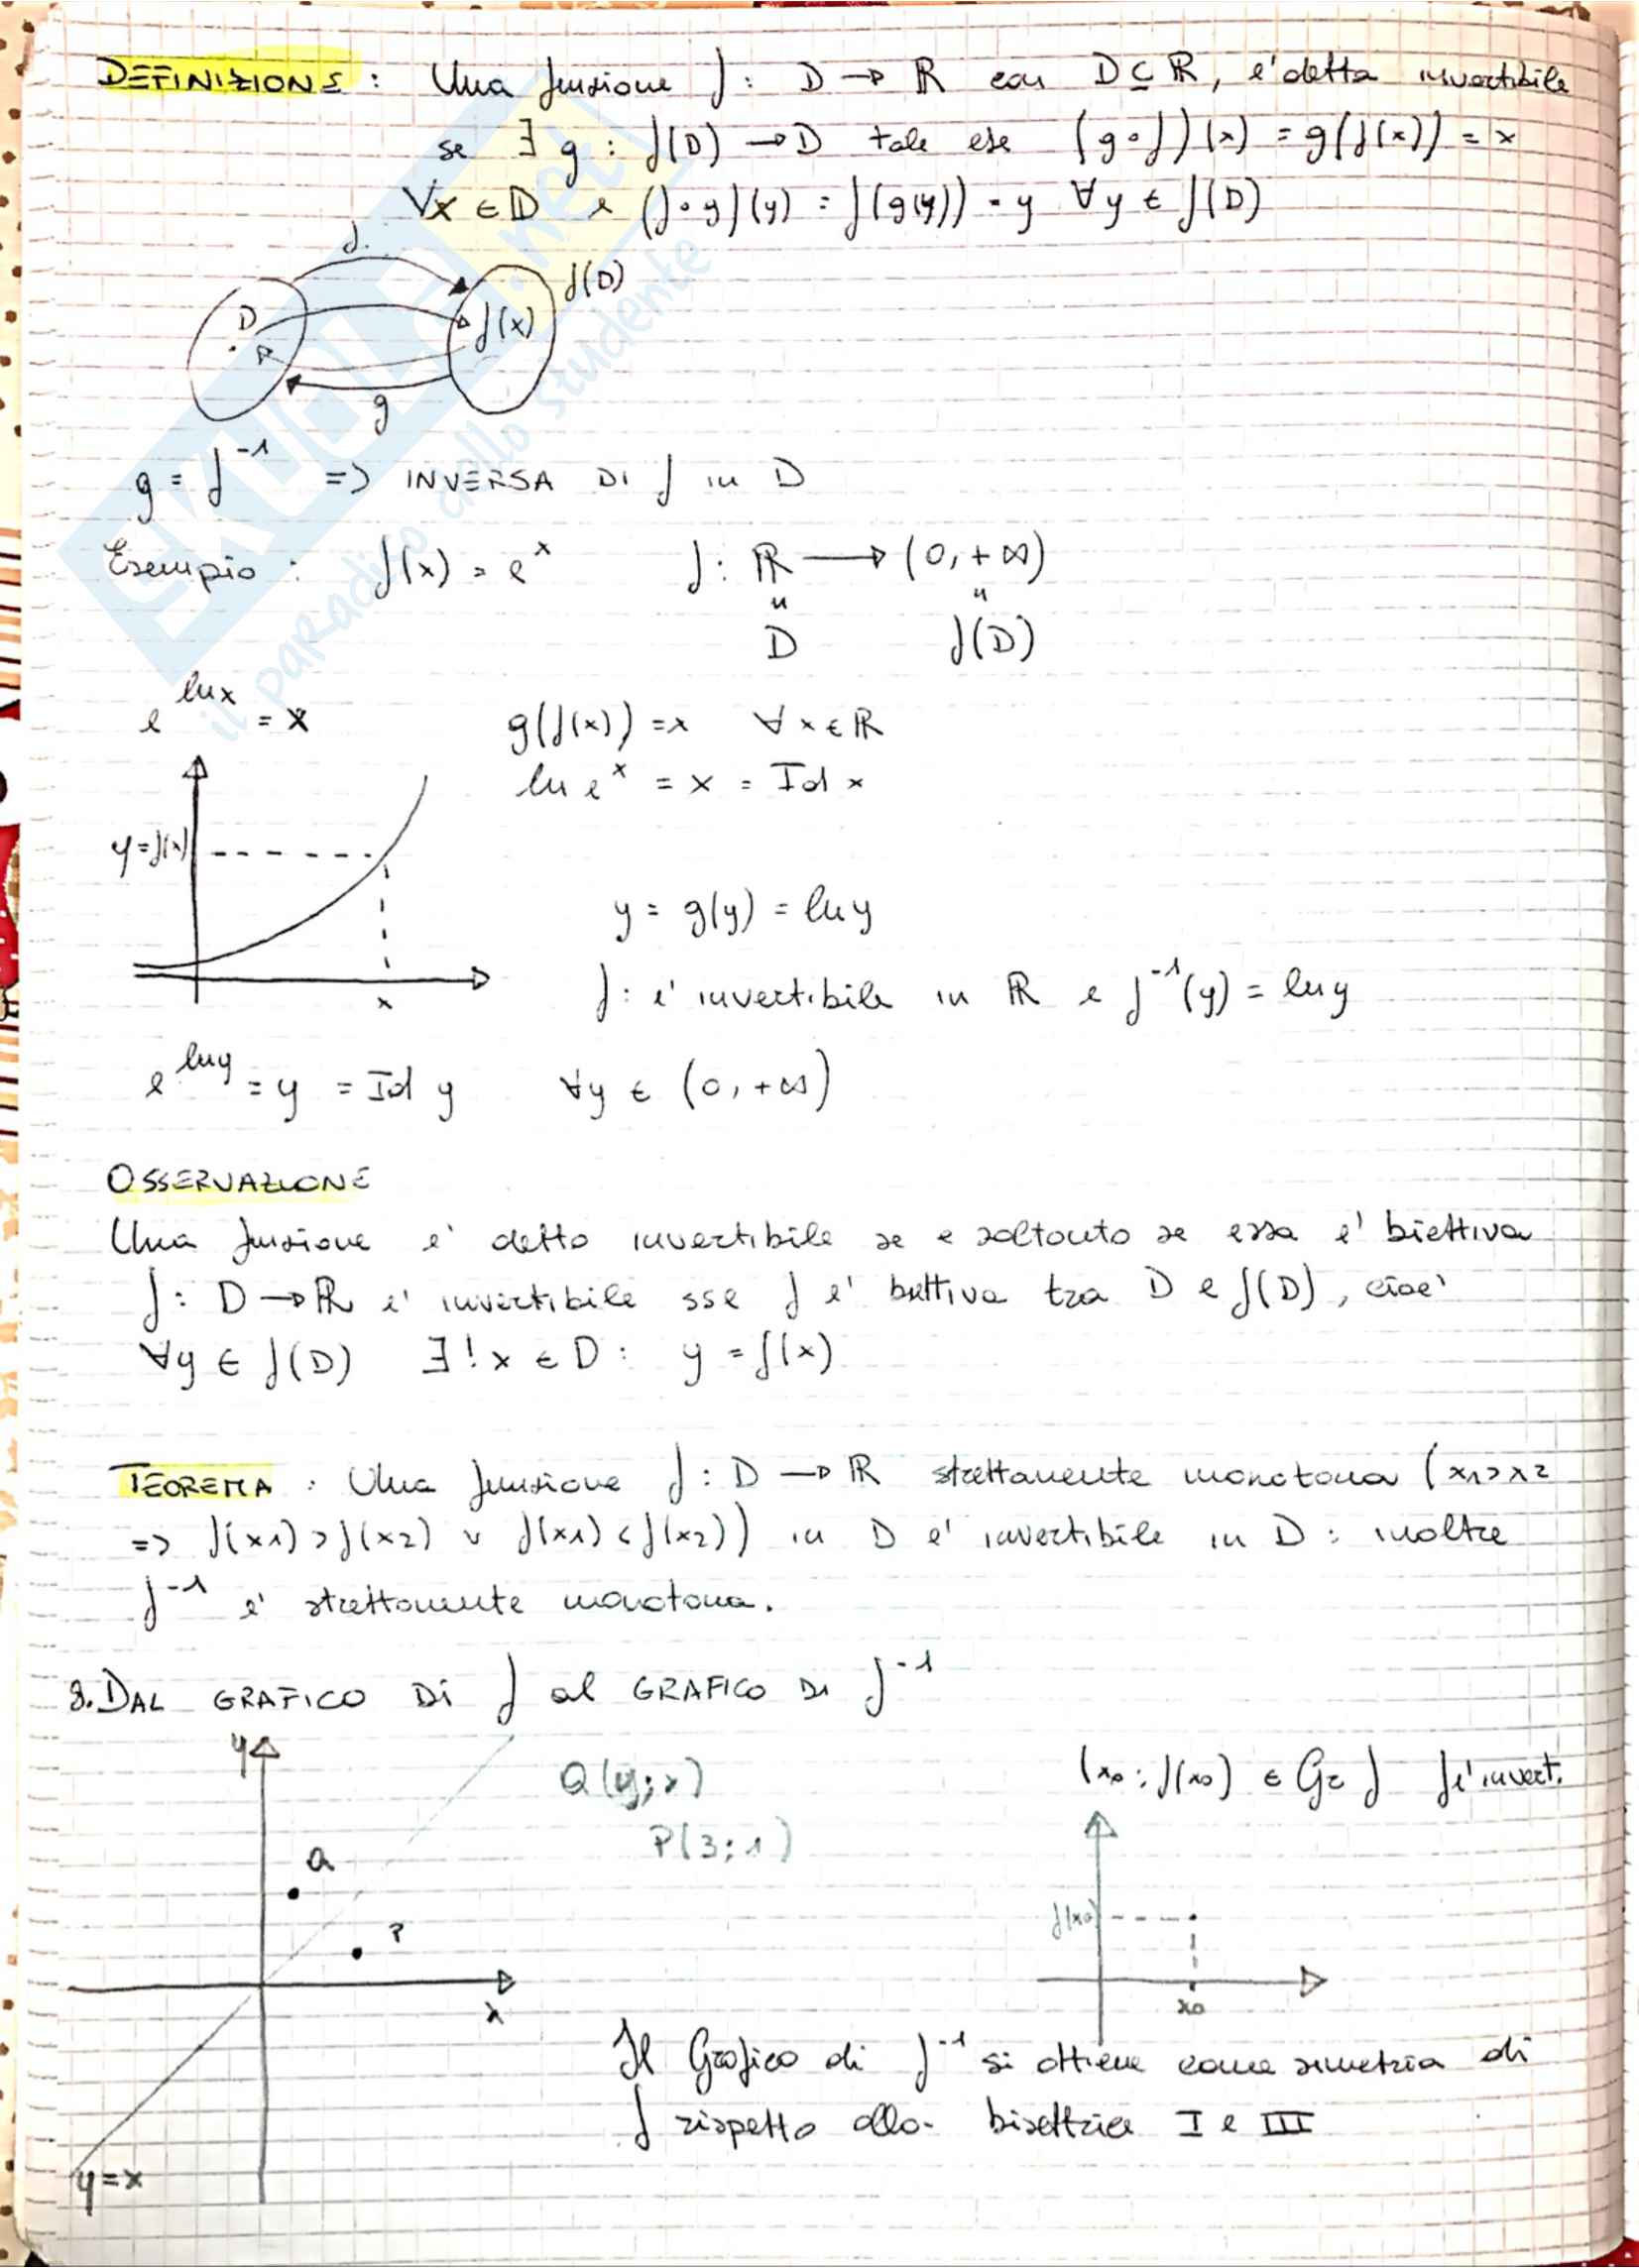 DEFINIZIONE : Una funzione f : D → ℝ con D ⊆ ℝ, e' detta invertibile
se ∃ g : f(D) → D tale che (g∘f)(x) = g(f(x)) = x
∀x ∈ D e (f∘g)(y) = f(g(y)) = y ∀y ∈ f(D)
f
D
f(x)
f(D)
g
g = f⁻¹ => INVERSA DI f in D
Esempio : f(x) = eˣ f : ℝ → (0, +∞)
" "
D f(D)
e^lnx = x g(f(x)) = x ∀x ∈ ℝ
ln eˣ = x = Id x
y = f(x)
x
y = g(y) = ln y
f : e' invertibile in ℝ e f⁻¹(y) = ln y
e^lny = y = Id y ∀y ∈ (0, +∞)
OSSERVAZIONE
Una funzione e' detto invertibile se e soltanto se essa e' biettiva
f : D → ℝ e' invertibile sse f e' bettiva tra D e f(D), cioe'
∀y ∈ f(D) ∃! x ∈ D : y = f(x)
TEOREMA : Una funzione f : D → ℝ strettamente monotona (x1 > x2
=> f(x1) > f(x2) v f(x1) < f(x2)) in D e' invertibile in D : inoltre
f⁻¹ e' strettamente monotona.
8. DAL GRAFICO DI f al GRAFICO DI f⁻¹
y
Q (y; x)
P (3; 1)
(x0 ; f(x0)) ∈ Gr f f e' invert.
Q
P
x
y = x
f(x0)
x0
Il Grafico di f⁻¹ si ottiene come simetria di
f rispetto alla bisettrice I e III
SKUOLA.net
il paradiso dello studente